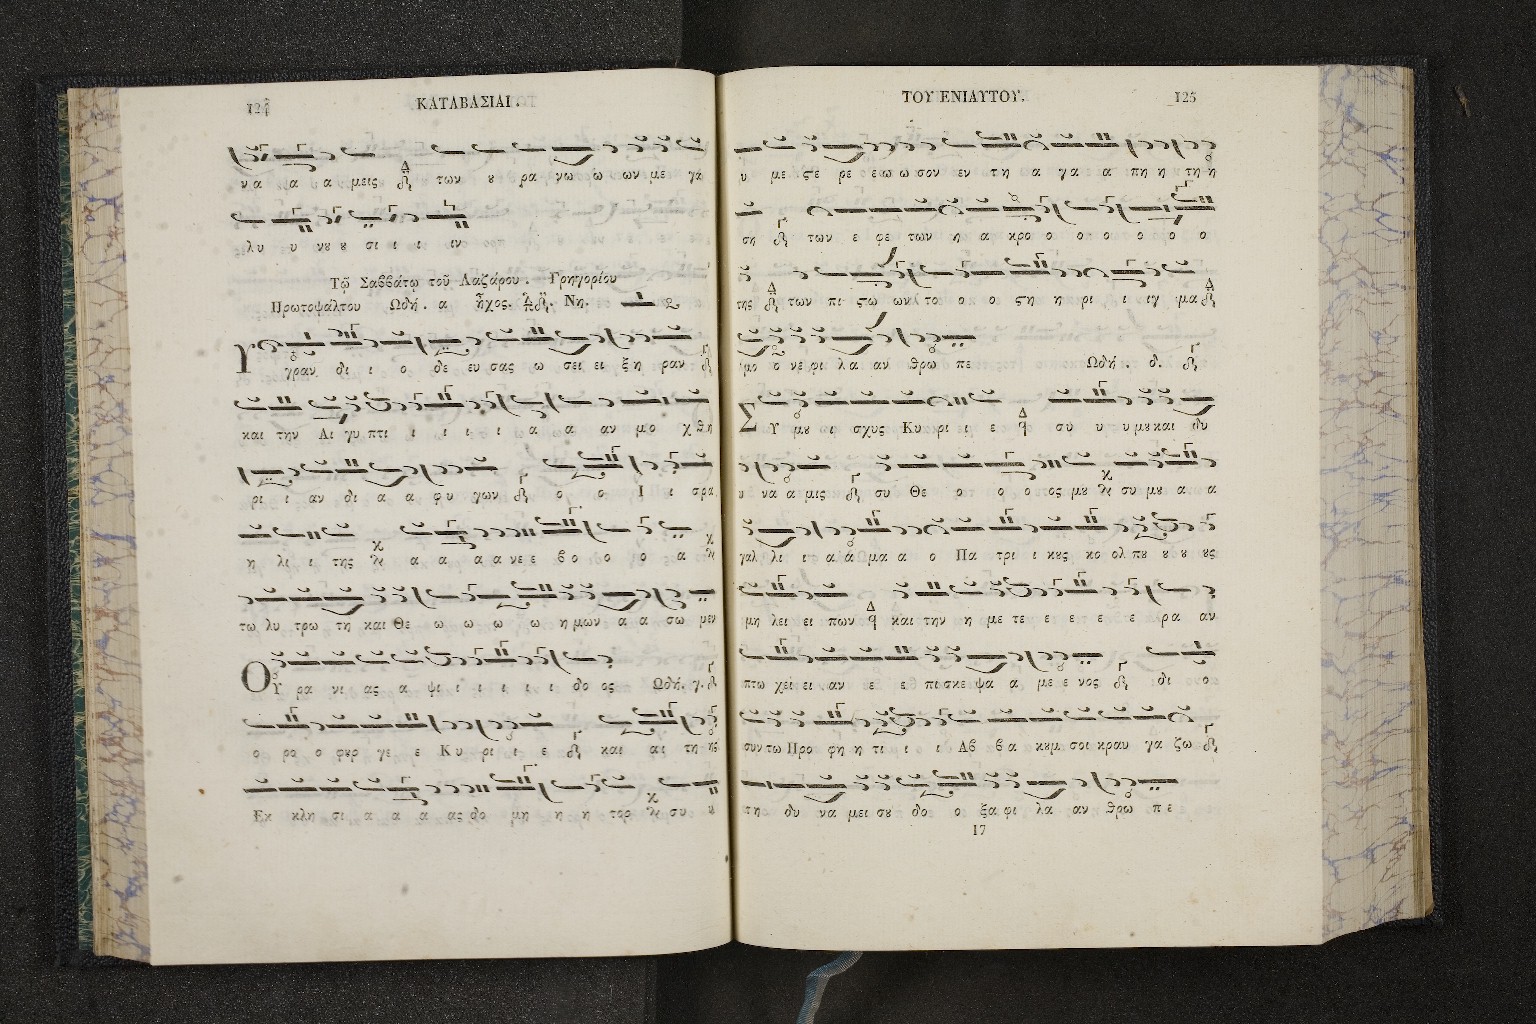 124
ΚΑΤΑΒΑΣΙΑΙ.
να α α μεις των ȣ ρα νω ω ων με γα
λυ υ νȣ ȣ σι ι ι ιν
Τῷ Σαββάτῳ τοῦ Λαζάρου. Γρηγορίου
Πρωτοψάλτου Ωδή. α ἦχος. Νη.
Υ γραν δι ι ο δε ευ σας ω σει ει ξη ραν
και την Αι γυ πτι ι ι ι ι α α αν μο χ θη
ρι ι αν δι α α φυ γων ο ο Ι ι σρα
η λι ι της α α α α νε ε βο ο ο α
τω λυ τρω τη και Θε ω ω ω ω η μων α α σω μεν
ΟΥ ρα νι ας α ψι ι ι ι ι ι δο ος Ωδή. γ.
ο ρο ο φȣρ γε ε Κυ ρι ι ε και αι τη ης
Εκ κλη σι α α α ας δο μη η η τορ συ ȣ
ΤΟΥ ΕΝΙΑΥΤΟΥ.
125
υ με ϛε ρε ε ω ω σον εν τη α γα α πη η τη η
ση των ε φε των η α κρο ο ο ο ο ο ο
της των πι ϛω ων το ο ο ϛη η ρι ι ιγ μα
μο ο νε φι λα αν θρω πε Ωδή. δ.
ΣΥ μȣ ι σχυς Κυ ρι ι ε συ υ υ μȣ και δυ
υ να α μις συ Θε ο ο ο τος μȣ συ μȣ α α
γαλ λι ι α α μα α ο Πα τρι ι κȣς κο ολ πȣ ȣ ȣ ȣς
μη λει ει πων και την η με τε ε ε ε ε ρα αν
πτω χει ει αν ε ε πι σκε ψα α με ε νος δι ο
συν τω Προ φη η τι ι ι Αβ βα κȣμ σοι κραυ γα ζω
τη δυ να μει σȣ δο ο ξα φι λα αν θρω πε
17